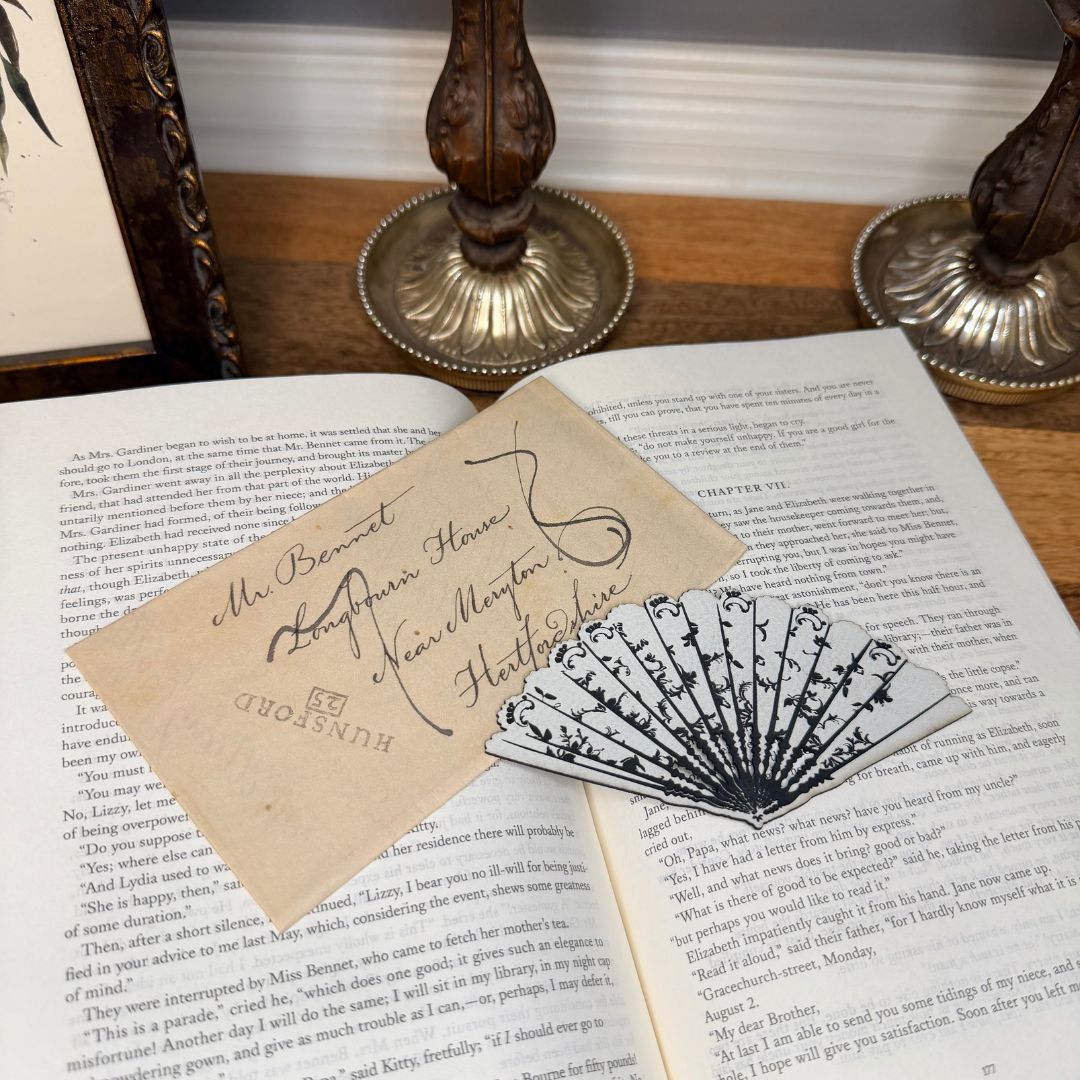 As Mrs. Gardiner began to wish to be at home, it was settled that she and her
should go to London, at the same time that Mr. Bennet came from it. The
fore, took them the first stage of their journey, and brought its master
Mrs. Gardiner went away in all the perplexity about Elizabeth
friend, that had attended her from that part of the world. His
untarily mentioned before them by her niece; and the
Mrs. Gardiner had formed, of their being follow
nothing. Elizabeth had received none since
The present unhappy state of the
ness of her spirits unnecessary
that, though Elizabeth,
feelings, was perfe
borne the d
though
the
coura
It wa
introduc
have endu
been my ow
"You must
"You may we
No, Lizzy, let me
of being overpower
"Do you suppose
"Yes; where else can
"And Lydia used to wa
"She is happy, then," sa
of some duration."
Then, after a short silence,
fied in your advice to me last May, which, considering the event, shews some greatness
of mind."
They were interrupted by Miss Bennet, who came to fetch her mother's tea.
"This is a parade," cried he, "which does one good; it gives such an elegance to
misfortune! Another day I will do the same; I will sit in my library, in my night cap
and powdering gown, and give as much trouble as I can,—or, perhaps, I may defer it,
said Kitty, fretfully; "if I should ever go to
Mr. Bennet
Longbourn House
Near Meryton
Hertfordshire
HUNSFORD
25
Kitty.
her residence there will probably be
"Lizzy, I bear you no ill-will for being justi-
Bourne for fifty pounds!
ohibited, unless you stand up with one of your sisters. And you are never
till you can prove, that you have spent ten minutes of every day in a
these threats in a serious light, began to cry.
"do not make yourself unhappy. If you are a good girl for the
ke you to a review at the end of them."
CHAPTER VII.
urn, as Jane and Elizabeth were walking together in
y saw the housekeeper coming towards them, and,
to their mother, went forward to meet her; but,
n they approached her, she said to Miss Bennet,
errupting you, but I was in hopes you might have
so I took the liberty of coming to ask."
We have heard nothing from town."
great astonishment, "don't you know there is an
He has been here this half hour, and
for speech. They ran through
library;—their father was in
with their mother, when
the little copse."
once more, and ran
is way towards a
habit of running as Elizabeth, soon
for breath, came up with him, and eagerly
Jane,
lagged behi
cried out,
"Oh, Papa, what news? what news? have you heard from my uncle?"
"Yes, I have had a letter from him by express."
"Well, and what news does it bring? good or bad?"
"What is there of good to be expected?" said he, taking the letter from his
"but perhaps you would like to read it."
Elizabeth impatiently caught it from his hand. Jane now came up.
"Read it aloud," said their father, "for I hardly know myself what it is
"Gracechurch-street, Monday,
August 2.
"My dear Brother,
"At last I am able to send you some tidings of my niece, and
hole, I hope will give you satisfaction. Soon after you left
177